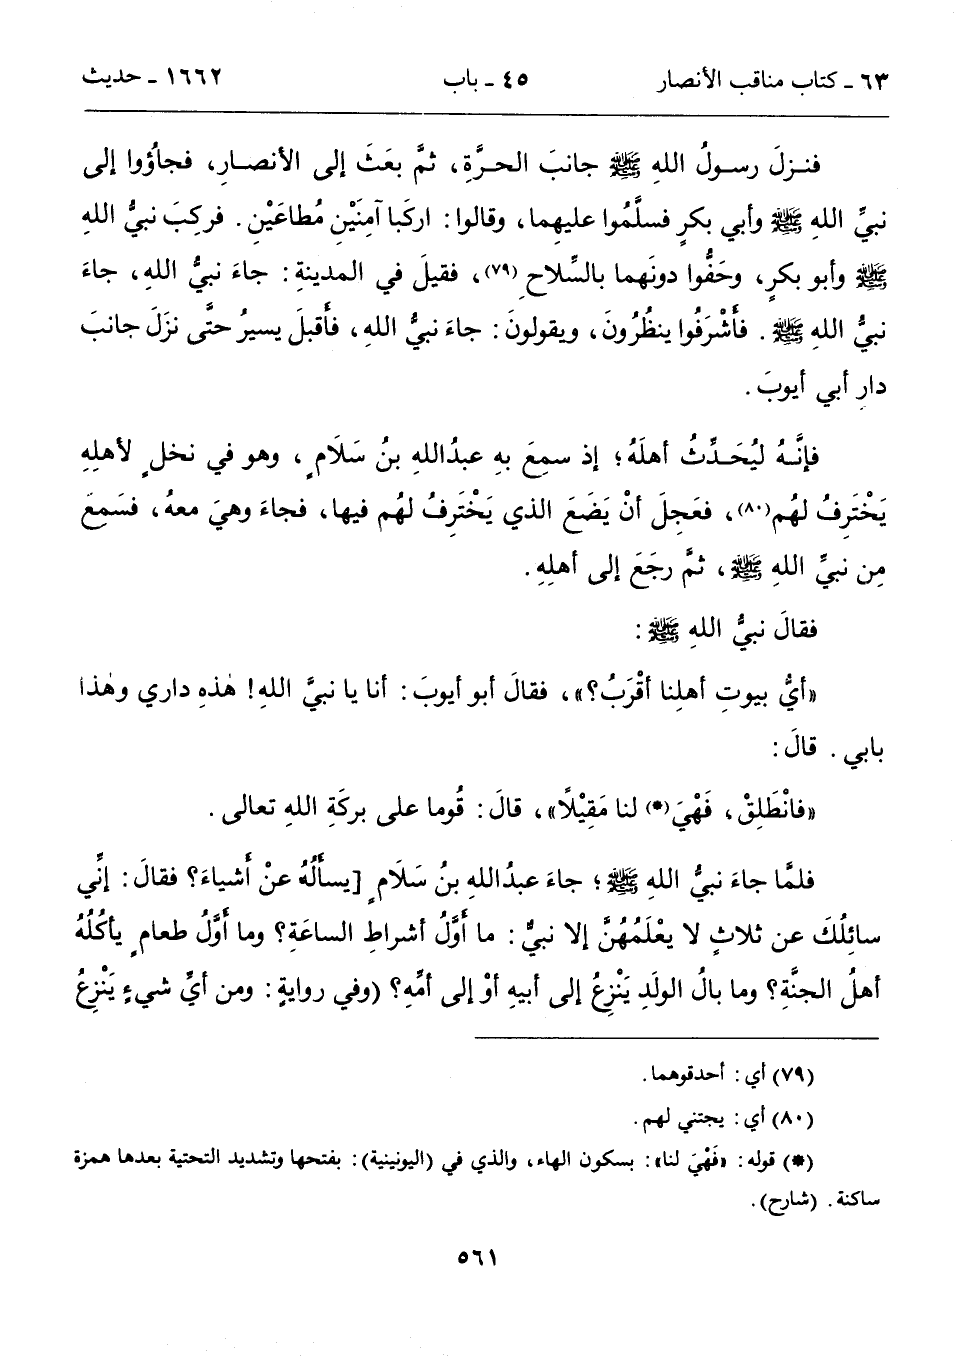 ٦٣ ـ كتاب مناقب الأنصار ٤٥ ـ باب ١٦٦٢ ـ حديث
فنـزلَ رسـولُ اللهِ ﷺ جانبَ الحـرَّةِ، ثمَّ بعَثَ إلى الأنصـارِ، فجاؤوا إلى
نبيِّ اللهِ ﷺ وأبي بكرٍ فسلَّمُوا عليهِما، وقالوا: اركَبا آمِنَيْنِ مُطاعَيْنِ. فركِبَ نبيُّ اللهِ
ﷺ وأبو بكرٍ، وحَفُّوا دونَهما بالسِّلاحِ(٧٩)، فقيلَ في المدينةِ: جاءَ نبيُّ اللهِ، جاءَ
نبيُّ اللهِ ﷺ. فأَشْرَفُوا ينظُرُونَ، ويقولونَ: جاءَ نبيُّ اللهِ، فأَقبلَ يسيرُ حتَّى نزَلَ جانبَ
دارِ أبي أيوبَ.
فإنَّـهُ ليُحَـدِّثُ أهلَهُ؛ إذ سمِعَ بهِ عبدُاللهِ بنُ سَلَامٍ، وهو في نخلٍ لأهلِهِ
يَخْتَرِفُ لهُم(٨٠)، فعَجِلَ أنْ يَضَعَ الذي يَخْتَرِفُ لهُم فيها، فجاءَ وهيَ معهُ، فسَمِعَ
مِن نبيِّ اللهِ ﷺ، ثمَّ رجَعَ إلى أهلِهِ.
فقالَ نبيُّ اللهِ ﷺ:
«أيُّ بيوتِ أهلِنا أقْرَبُ؟»، فقالَ أبو أيوبَ: أنا يا نبيَّ اللهِ! هٰذهِ داري وهٰذا
بابي. قالَ:
«فانْطَلِقْ، فَهْيَ(*) لنا مَقِيْلًا»، قالَ: قُوما على بركَةِ اللهِ تعالى.
فلمَّا جاءَ نبيُّ اللهِ ﷺ؛ جاءَ عبدُاللهِ بنُ سَلَامٍ [يسأَلُهُ عنْ أَشياءَ؟ فقالَ: إنِّي
سائِلُكَ عن ثلاثٍ لا يعْلَمُهُنَّ إلا نبيٌّ: ما أَوَّلُ أشراطِ الساعَةِ؟ وما أَوَّلُ طعامٍ يأكُلُهُ
أهلُ الجنَّةِ؟ وما بالُ الولَدِ يَنْزِعُ إلى أبيهِ أوْ إلى أمِّهِ؟ (وفي روايةٍ: ومن أيِّ شيءٍ يَنْزِعُ
(٧٩) أي: أحدقوهما.
(٨٠) أي: يجتني لهم.
(*) قوله: «فَهْيَ لنا»: بسكون الهاء، والذي في (اليونينية): بفتحها وتشديد التحتية بعدها همزة
ساكنة. (شارح).
٥٦١